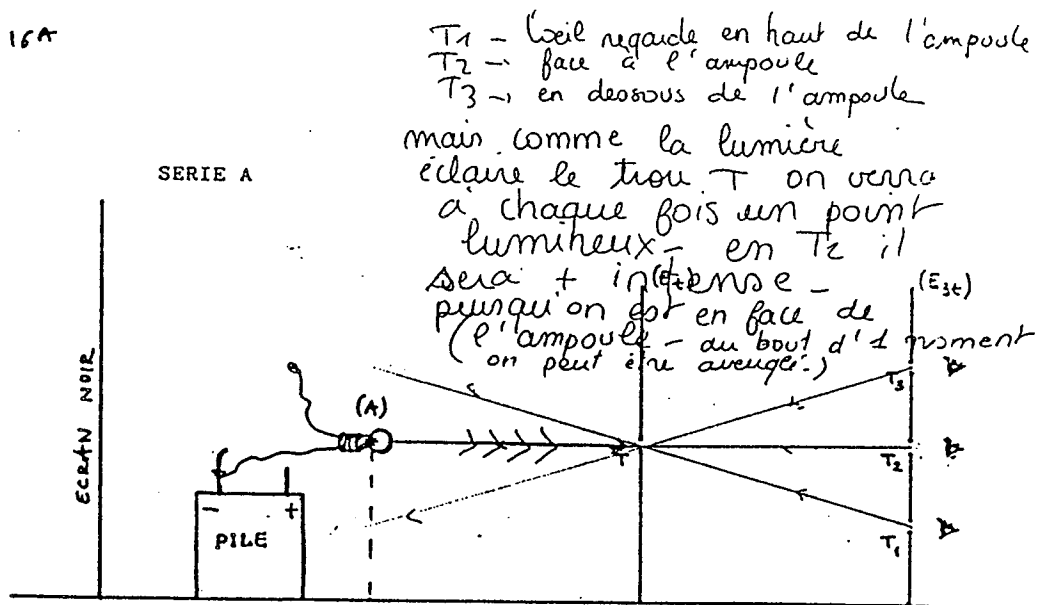 16A
T1 - l'oeil regarde en haut de l'ampoule
T2 → face à l'ampoule
T3 → en dessous de l'ampoule
mais comme la lumière
éclaire le trou T on verra
à chaque fois un point
lumineux - en T2 il
sera + intense -
puisqu'on est en face de
(l'ampoule - au bout d'1 moment
on peut être aveuglé.)
SERIE A
(Et)
(E3t)
ECRAN NOIR
(A)
T
T3
T2
T1
- +
PILE